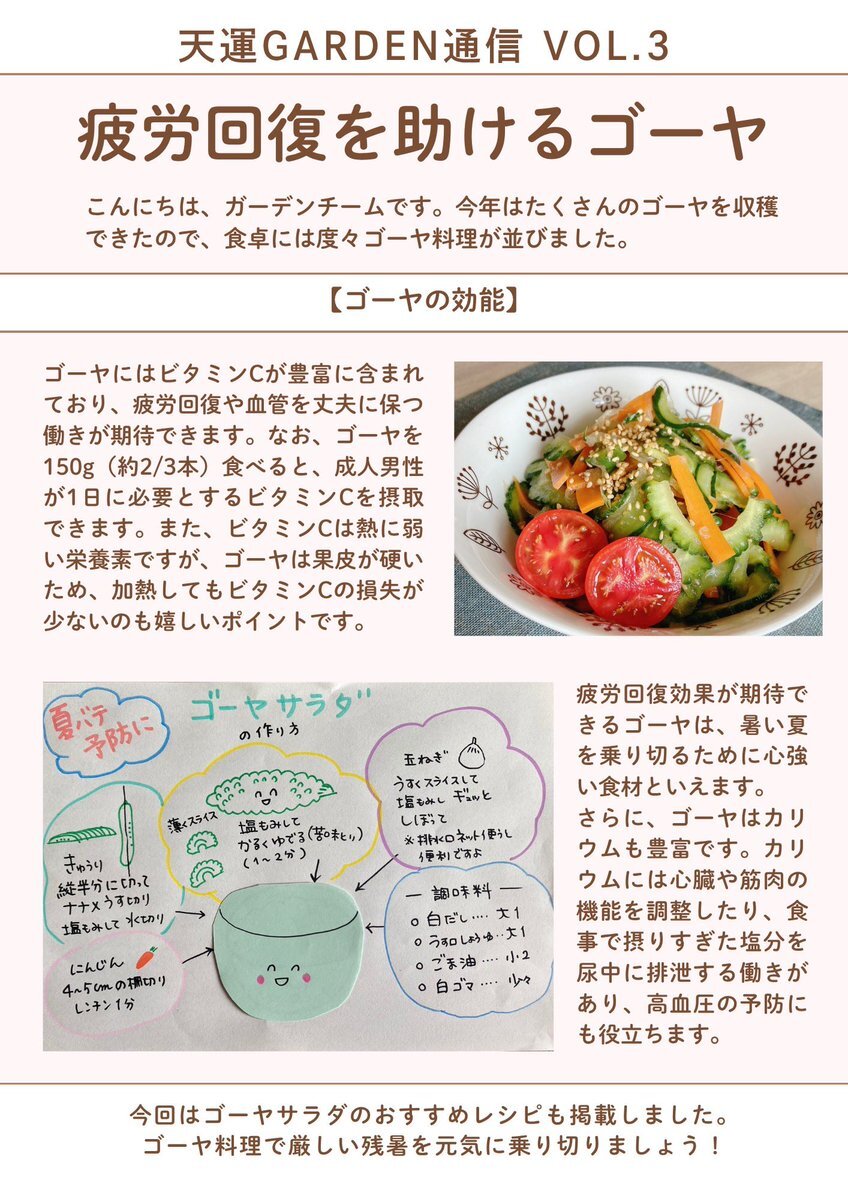 天運GARDEN通信 VOL.3
疲労回復を助けるゴーヤ
こんにちは、ガーデンチームです。今年はたくさんのゴーヤを収穫
できたので、食卓には度々ゴーヤ料理が並びました。
【ゴーヤの効能】
ゴーヤにはビタミンCが豊富に含まれ
ており、疲労回復や血管を丈夫に保つ
働きが期待できます。なお、ゴーヤを
150g（約2/3本）食べると、成人男性
が1日に必要とするビタミンCを摂取
できます。また、ビタミンCは熱に弱
い栄養素ですが、ゴーヤは果皮が硬い
ため、加熱してもビタミンCの損失が
少ないのも嬉しいポイントです。
夏バテ
予防に
ゴーヤサラダ
の作り方
薄くスライス
塩もみして
かるくゆでる(苦味とり)
(1〜2分)
玉ねぎ
うすくスライスして
塩もみし ギュッと
しぼって
※排水口ネット使うと
便利ですよ
きゅうり
縦半分に切って
ナナメうす切り
塩もみして水切り
にんじん
4〜5cmの棚切り
レンチン1分
ー 調味料 ー
○ 白だし ···· 大1
○ うす口しょうゆ ·· 大1
○ ごま油 ···· 小2
○ 白ゴマ ···· 少々
疲労回復効果が期待で
きるゴーヤは、暑い夏
を乗り切るために心強
い食材といえます。
さらに、ゴーヤはカリ
ウムも豊富です。カリ
ウムには心臓や筋肉の
機能を調整したり、食
事で摂りすぎた塩分を
尿中に排泄する働きが
あり、高血圧の予防に
も役立ちます。
今回はゴーヤサラダのおすすめレシピも掲載しました。
ゴーヤ料理で厳しい残暑を元気に乗り切りましょう！